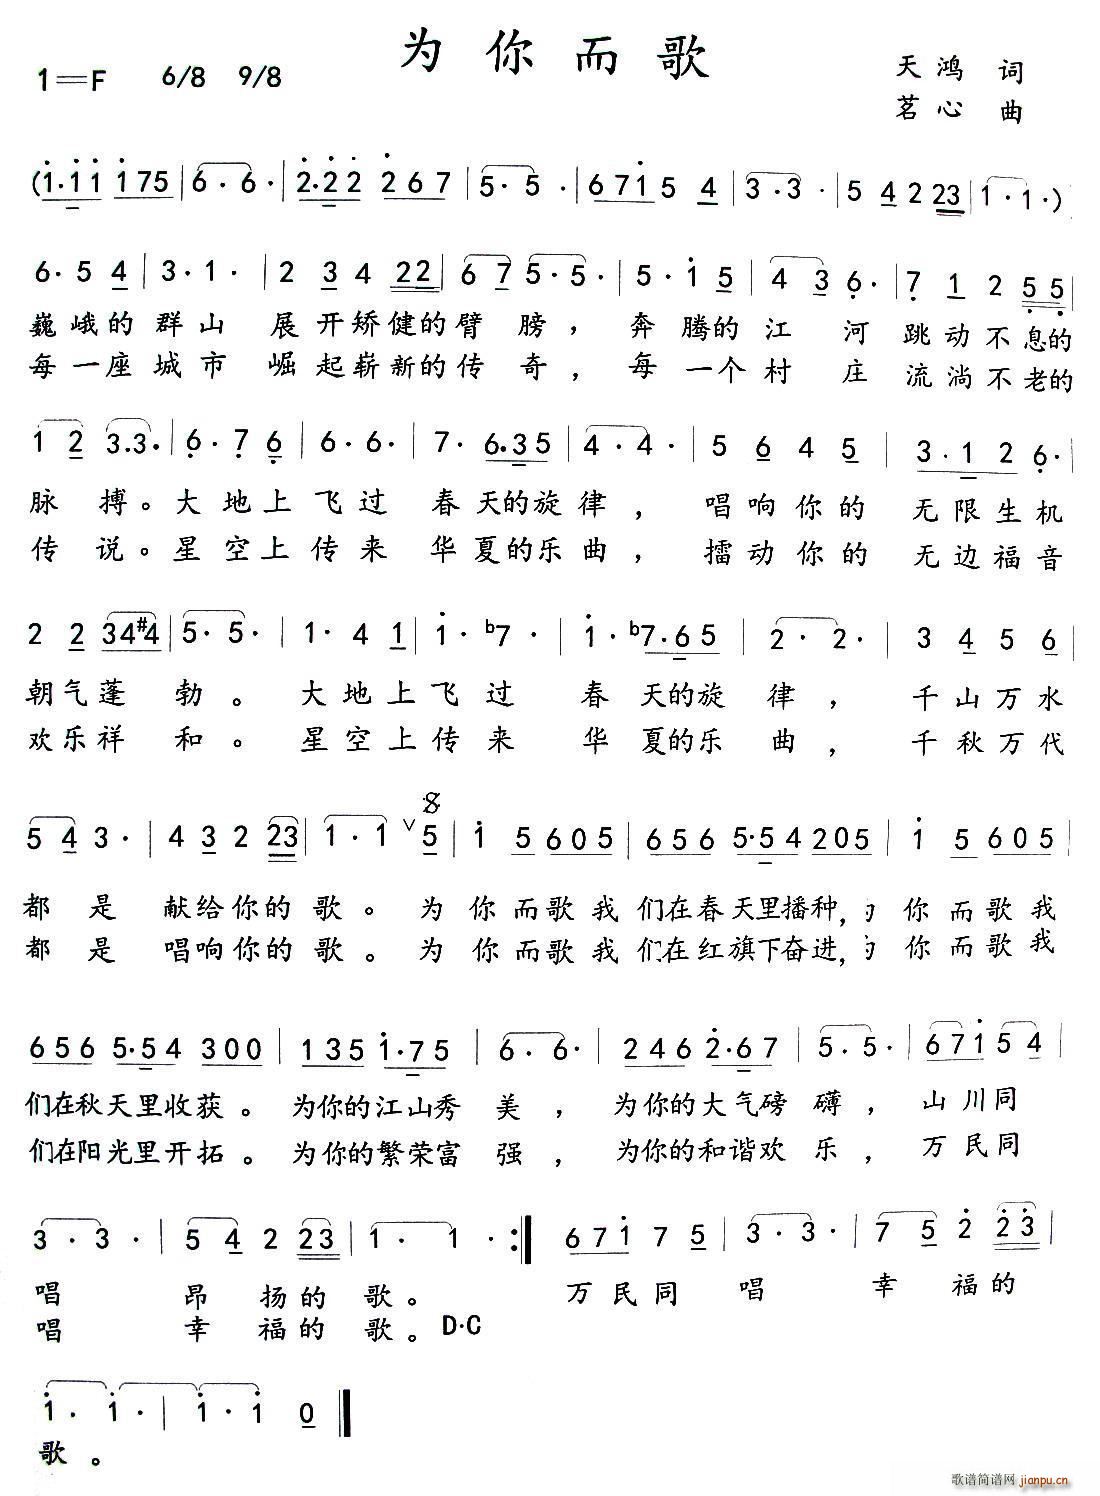 为你而歌
1=F 6/8 9/8
天鸿 词
茗心 曲
(1·11 175 | 6· 6· | 2·22 267 | 5· 5· | 6715 4 | 3·3· | 5 4 2 23 | 1·1·)
6· 5 4 | 3·1· | 2 3 4 22 | 6 7 5·5· | 5·1 5 | 4 3 6· | 7 1 2 55 |
巍峨的群山 展开矫健的臂膀，奔腾的江河跳动不息的
每一座城市 崛起崭新的传奇，每一个村庄流淌不老的
1 2 3·3· | 6·7 6 | 6·6· | 7· 6·35 | 4·4· | 5 6 4 5 | 3·1 2 6· |
脉搏。大地上飞过 春天的旋律，唱响你的 无限生机
传说。星空上传来 华夏的乐曲，擂动你的 无边福音
2 2 34#4 | 5·5· | 1·4 1 | 1·b7· | 1·b7·65 | 2·2· | 3 4 5 6 |
朝气蓬勃。大地上飞过 春天的旋律，千山万水
欢乐祥和。星空上传来 华夏的乐曲，千秋万代
5 4 3· | 4 3 2 23 | 1·1 ∨5 | 1 5 605 | 656 5·54 205 | 1 5 605 |
都是 献给你的歌。为你而歌我们在春天里播种，为你而歌我
都是 唱响你的歌。为你而歌我们在红旗下奋进，为你而歌我
656 5·54 300 | 135 1·75 | 6·6· | 246 2·67 | 5·5· | 6715 4 |
们在秋天里收获。为你的江山秀美，为你的大气磅礴，山川同
们在阳光里开拓。为你的繁荣富强，为你的和谐欢乐，万民同
3·3· | 5 4 2 23 | 1· 1· :‖ 671 7 5 | 3·3· | 7 5 2 23 |
唱 昂扬的歌。 万民同 唱 幸福的
唱 幸福的歌。D·C
1· 1· | 1·1 0 ‖
歌。
歌谱简谱网 jianpu.cn